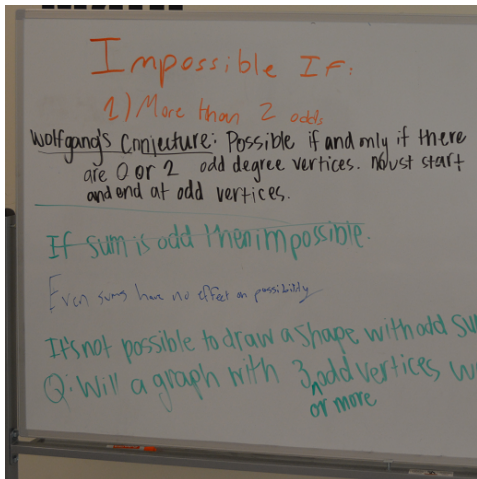 Impossible If:
1) More than 2 odds
Wolfgang's Conjecture: Possible if and only if there
are 0 or 2 odd degree vertices. Must start
and end at odd vertices.
If sum is odd then impossible.
Even sums have no effect on possibility
It's not possible to draw a shape with odd su
Q: Will a graph with 3 odd vertices w
or more